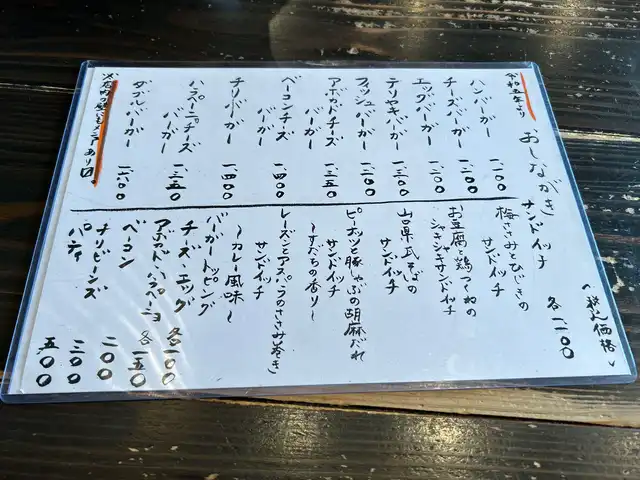 令和五年より
おしながき
〈税込価格〉
ハンバーガー 一、一〇〇
チーズバーガー 一、二〇〇
エッグバーガー 一、二〇〇
テリヤキバーガー 一、三〇〇
フィッシュバーガー 一、二〇〇
アボカドチーズバーガー 一、三五〇
ベーコンチーズバーガー 一、四〇〇
チリバーガー 一、四〇〇
ハラペーニョチーズバーガー 一、三五〇
ダブルバーガー 一、六〇〇
サンドイッチ 各 一、一〇〇
梅ささみとひじきの
サンドイッチ
お豆腐と鶏つくねの
シャキシャキサンドイッチ
山口県瓦そばの
サンドイッチ
ピーナッツと豚しゃぶの胡麻だれ
サンドイッチ
〜すだちの香り〜
レーズンとアスパラのささみ巻き
サンドイッチ
〜カレー風味〜
バーガートッピング
チーズ エッグ 各一〇〇
アボカド ハラペーニョ 各一五〇
ベーコン 二〇〇
チリビーンズ 三〇〇
パティ 五〇〇